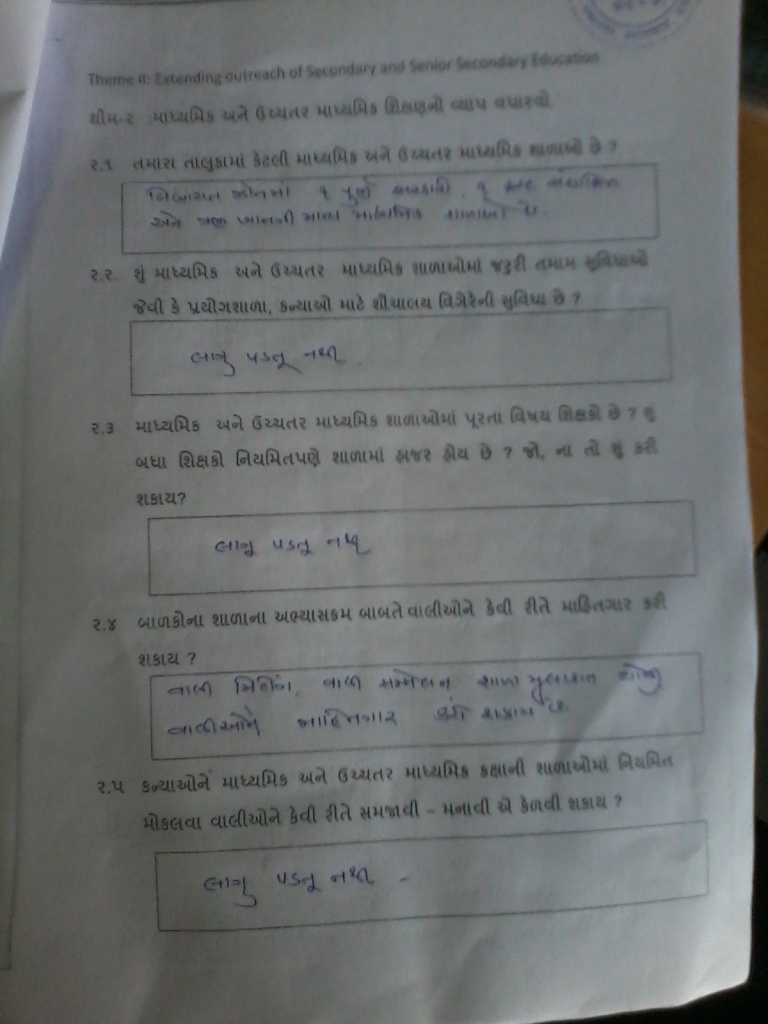 Theme II: Extending outreach of Secondary and Senior Secondary Education
થીમ-૨ :માધ્યમિક અને ઉચ્ચતર માધ્યમિક શિક્ષણનો વ્યાપ વધારવો.
૨.૧ તમારા તાલુકામાં કેટલી માધ્યમિક અને ઉચ્ચતર માધ્યમિક શાળાઓ છે ?
૧ ૧
અને માધ્યમિક શાળાઓ છે.
૨.૨. શું માધ્યમિક અને ઉચ્ચતર માધ્યમિક શાળાઓમાં જરૂરી તમામ સુવિધાઓ
જેવી કે પ્રયોગશાળા, કન્યાઓ માટે શૌચાલય વિગેરેની સુવિધા છે ?
લાગુ પડતૂ નથી
૨.૩ માધ્યમિક અને ઉચ્ચતર માધ્યમિક શાળાઓમાં પૂરતા વિષય શિક્ષકો છે ? શું
બધા શિક્ષકો નિયમિતપણે શાળામાં હાજર હોય છે ? જો, ના તો શું કરી
શકાય?
લાગૂ પડતૂ નથી
૨.૪ બાળકોના શાળાના અભ્યાસક્રમ બાબતે વાલીઓને કેવી રીતે માહિતગાર કરી
શકાય ?
વાલી મિટીંગ, વાલી સમ્મેલન શાળા મુલાકાત યોજી
વાલીઓને માહિતગાર કરી શકાય છે.
૨.૫ કન્યાઓને માધ્યમિક અને ઉચ્ચતર માધ્યમિક કક્ષાની શાળાઓમાં નિયમિત
મોકલવા વાલીઓને કેવી રીતે સમજાવી – મનાવી એ કેળવી શકાય ?
લાગુ પડતૂ નથી -